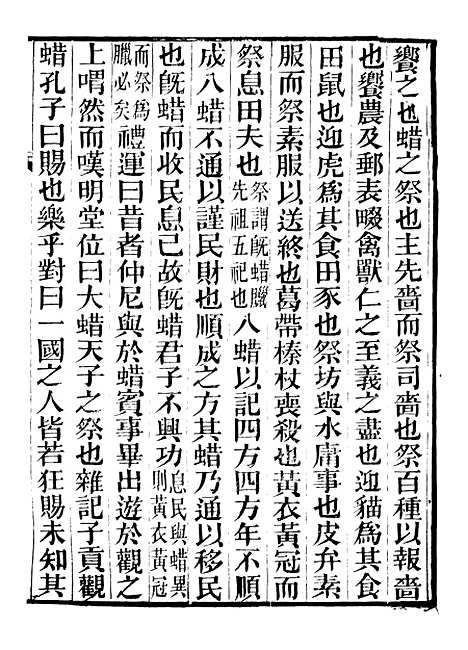 饗之也蜡之祭也主先嗇而祭司嗇也祭百種以報嗇
也饗農及郵表畷禽獸仁之至義之盡也迎貓爲其食
田鼠也迎虎爲其食田豕也祭坊與水庸事也皮弁素
服而祭素服以送終也葛帶榛杖喪殺也黃衣黃冠而
祭息田夫也祭謂旣蜡臘先祖五祀也八蜡以記四方四方年不順
成八蜡不通以謹民財也順成之方其蜡乃通以移民
也旣蜡而收民息已故旣蜡君子不興功息民與蜡異則黃衣黃冠
而祭爲臘必矣禮運曰昔者仲尼與於蜡賓事畢出遊於觀之
上喟然而嘆明堂位曰大蜡天子之祭也雜記子貢觀
蜡孔子曰賜也樂乎對曰一國之人皆若狂賜未知其